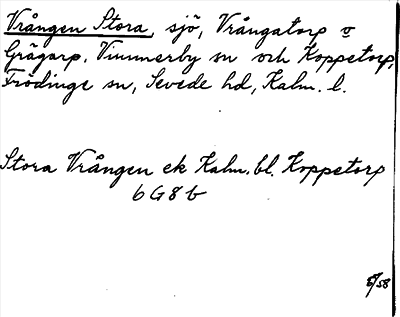 Vrången Stora, sjö, Vrångatorp o
Grågarp, Vimmerby sn och Koppetorp,
Frödinge sn, Sevede hd, Kalm. l.
Stora Vrången ek Kalm. bl. Koppetorp
6 G 8 b